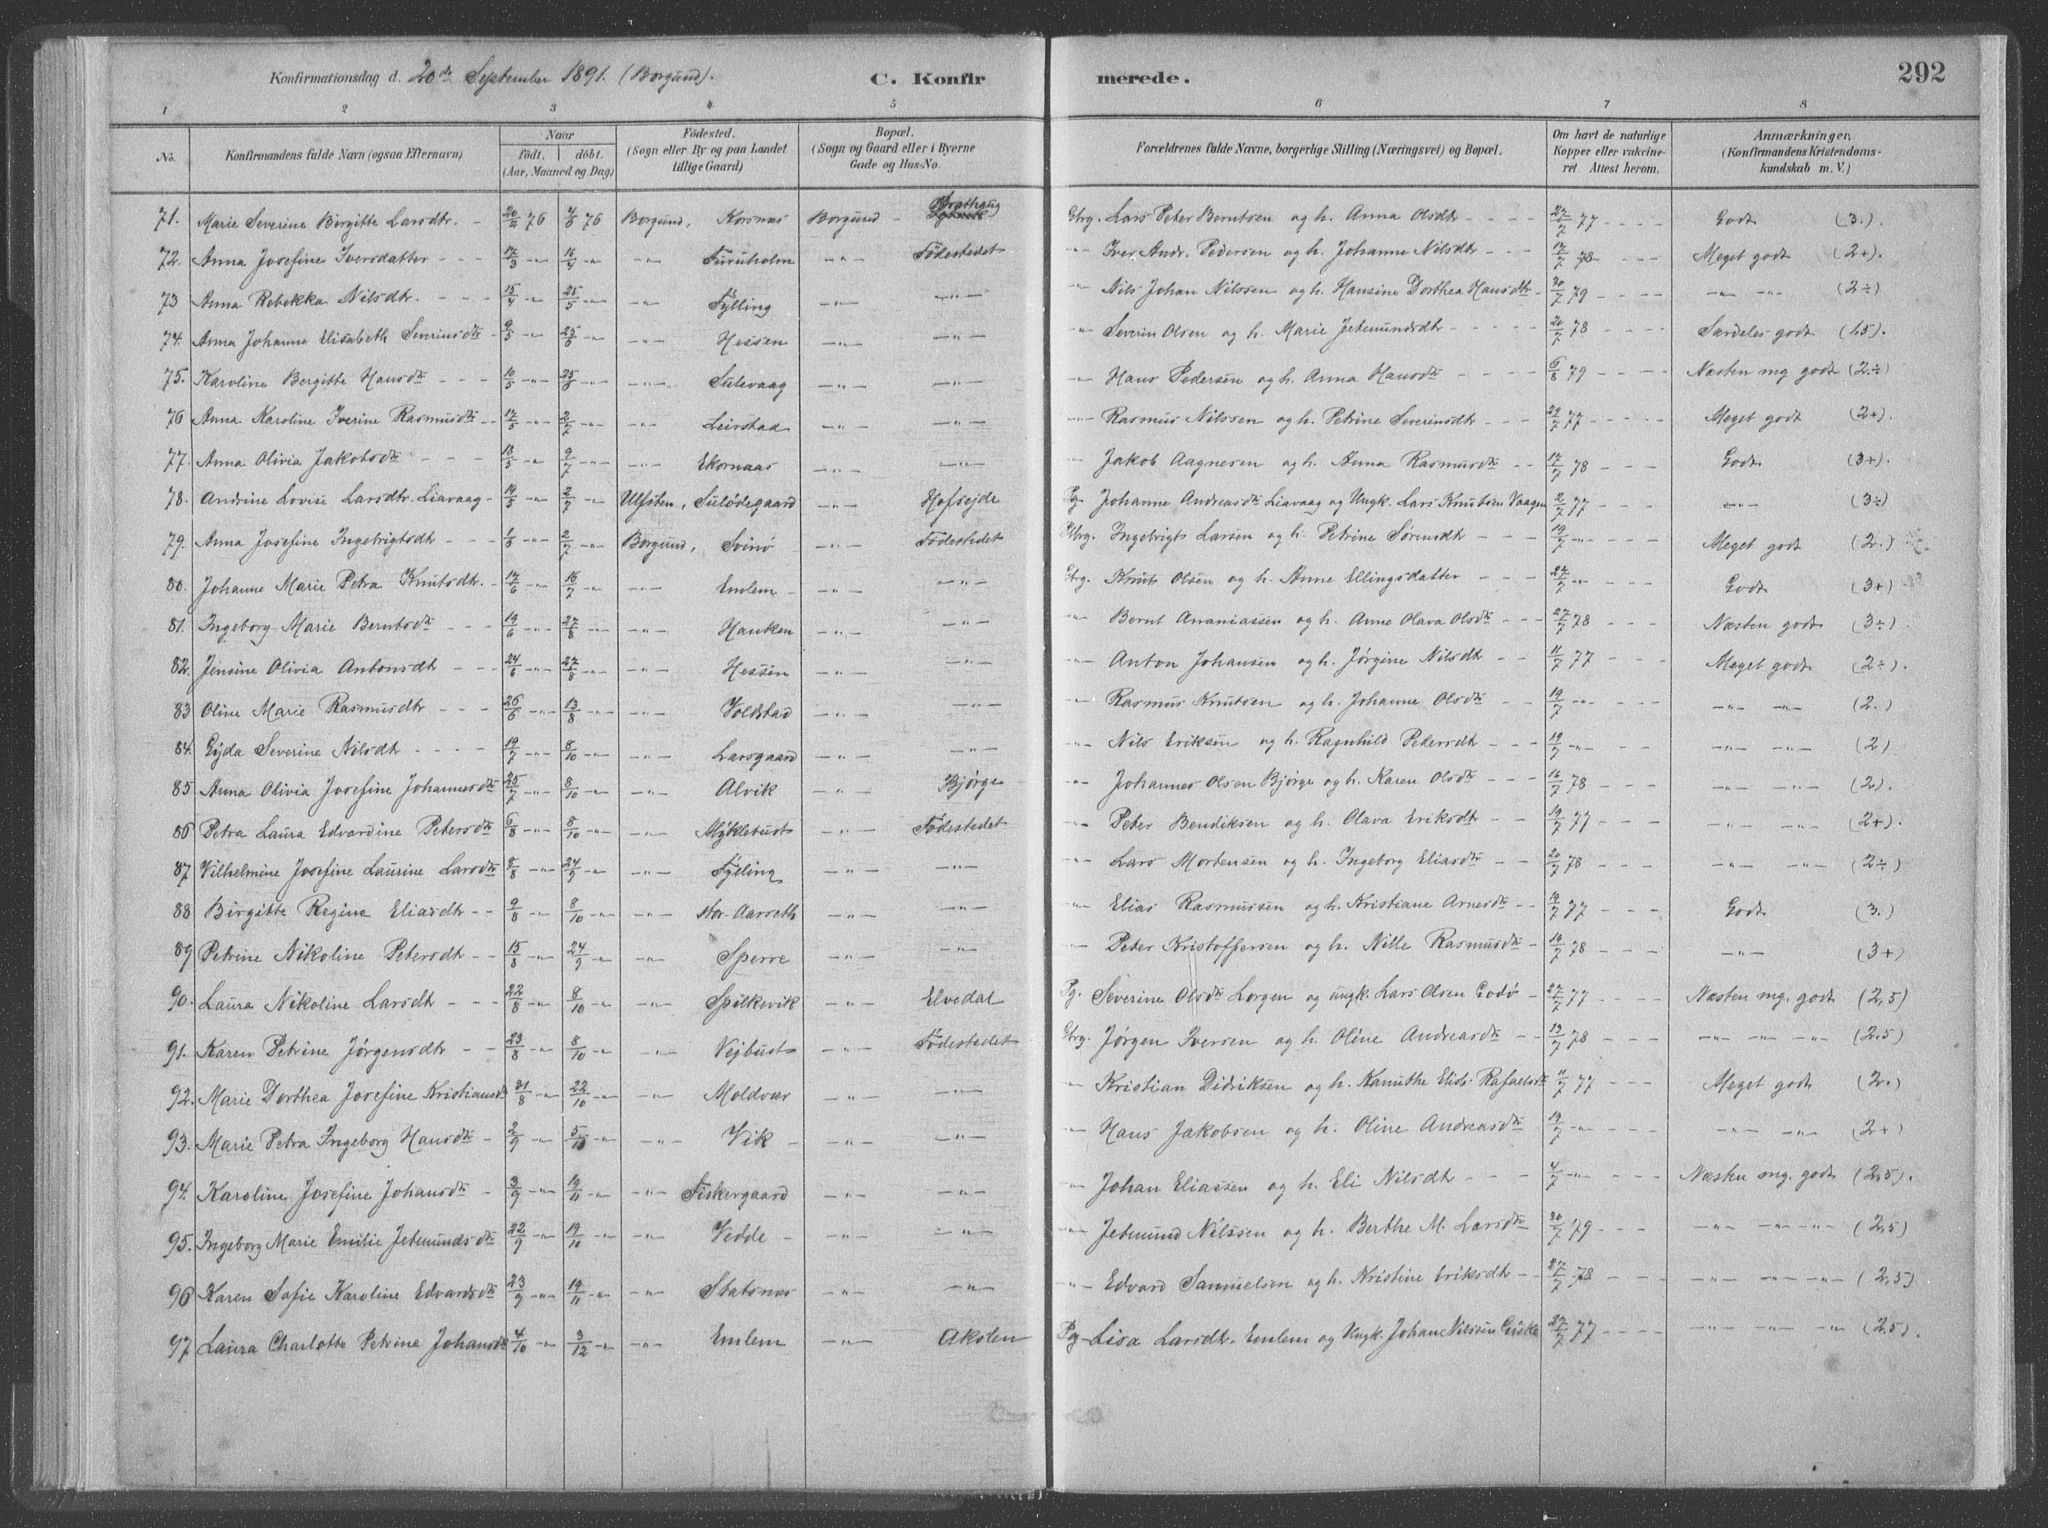 Konfirmationsdag d. 20de September 1891. (Borgund). C. Konfirmerede. 292
1 2 3 4 5 6 7 8
No. Konfirmandens fulde Navn (ogsaa Efternavn) Naar födt. döbt. (Aar, Maaned og Dag) Födested. (Sogn eller By og paa Landet tillige Gaard) Bopæl. (Sogn og Gaard eller i Byerne Gade og Hus-No. Forældrenes fulde Navne, borgerlige Stilling (Næringsvei) og Bopæl. Om havt de naturlige Kopper eller vakcineret. Attest herom. Anmærkninger. (Konfirmandens Kristendomskundskab m. V.)
71. Marie Severine Birgitte Larsdtr. - 20/2 76 4/6 76 Borgund, Korsnæs Borgund - Brathaug Gbrg. Lars Peter Berntsen og h. Anna Olsdtr - - - 27/7 77 - - - - Godt (3.)
72. Anna Josefine Iversdatter - - 17/3 -"- 16/4 -"- -"- Furuholm -"- Födestedet -"- Iver Andr. Pedersen og h. Johanne Nilsdtr - - - 17/7 78 - - - Meget godt (2+).
73 Anna Rebekka Nilsdtr. - - - 15/4 -"- 25/5 -"- -"- Fylling -"- -"- -"- Nils Johan Nilssen og h. Hansine Dorthea Hansdtr - 30/7 79 - - - -"- -"- (2÷)
74. Anna Johanne Elisabeth Severinsdtr - 9/5 -"- 25/6 -"- -"- Hessen -"- -"- -"- Severin Olsen og h. Marie Jetmundsdtr - - - - 20/7 78 - - - Særdeles godt (1,5).
75. Karoline Bergitte Hansdtr - - - 10/5 -"- 25/6 -"- -"- Sulevaag -"- -"- -"- Hans Pedersen og h. Anna Hansdtr - - - - 6/8 79 - - - Næsten mg. godt (2÷)
76 Anna Karoline Iverine Rasmusdtr - - 17/5 -"- 2/7 -"- -"- Leirstad -"- -"- -"- Rasmus Nilssen og h. Petrine Severinsdtr - - - 29/7 77 - - - Meget godt (2+)
77. Anna Olivia Jakobsdtr - - - 18/5 -"- 9/7 -"- -"- Ekornaas -"- -"- -"- Jakob Aagnesen og h. Anna Rasmusdtr - - 17/7 78 - - - Godt (3+).
78. Andrine Lovise Larsdtr. Liavaag - 19/5 -"- 2/7 -"- Ulfsten, Sulödegaard -"- Hofsejde Pg. Johanne Andreasdtr Liavaag og Ungk. Lars Knutsen Vaagen 2/7 77 - - - -"- (3÷)
79. Anna Josefine Ingebrigtsdtr - - 1/6 -"- 2/7 -"- Borgund, Svinö -"- Födestedet Gbrg. Ingebrigt Larsen og h. Petrine Sörensdtr - - - 19/7 -"- - - - Meget godt (2.)
80. Johanne Marie Petra Knutsdtr. - 17/6 -"- 16/7 -"- -"- Emlem - -"- -"- Gbrg. Knut Olsen og h. Anne Ellingsdatter - - - 27/7 -"- - - - Godt (3+)
81. Ingeborg Marie Berntsdtr - - - 19/6 -"- 27/8 -"- -"- Hauken -"- -"- -"- Bernt Ananiassen og h. Anne Olava Olsdtr - - - 27/7 78 - - - Næsten godt (3÷)
82. Jensine Olivia Antonsdtr - - - 24/6 -"- 27/8 -"- -"- Hessen -"- -"- -"- Anton Johansen og h. Jörgine Nilsdtr - - 11/7 77 - - - Meget godt (2÷).
83 Oline Marie Rasmusdtr - - - 26/6 -"- 13/8 -"- -"- Voldstad -"- -"- -"- Rasmus Knutsen og h. Johanne Olsdtr - - 19/7 -"- - - - -"- -"- (2.)
84. Gyda Severine Nilsdtr - - - - 19/7 -"- 8/10 -"- -"- Larsgaard -"- -"- -"- Nils Eriksen og h. Ragnhild Petersdtr - - - 19/7 -"- - - - -"- -"- (2)
85 Anna Olivia Josefine Johannesdtr 25/7 -"- 8/10 -"- -"- Alvik -"- Bjørge -"- Johannes Olsen Bjørge og h. Karen Olsdtr - - - 16/7 78 - - - -"- -"- (2).
86 Petra Laura Edvardine Petersdtr 6/8 -"- 8/10 -"- -"- Myklebust -"- Födestedet -"- Peter Bendiksen og h. Olava Eriksdtr - - - 19/7 77 - - - -"- -"- (2+)
87 Vilhelmine Josefine Laurine Larsdtr 8/8 -"- 24/9 -"- -"- Fylling -"- -"- -"- Lars Mortensen og h. Ingeborg Eliasdtr - - - 20/7 78 - - - -"- -"- (2÷)
88 Birgitte Regine Eliasdtr - - 9/8 -"- 8/10 -"- -"- Stor-Aarseth -"- -"- -"- Elias Rasmussen og h. Kristiane Arnesdtr - - 19/7 77 - - - Godt (3.)
89 Petrine Nikoline Petersdtr - - 15/8 -"- 24/9 -"- -"- Sperre -"- -"- -"- Peter Kristoffersen og h. Nille Rasmusdtr - 16/7 78 - - - -"- (3+)
90. Laura Nikoline Larsdtr - - - 22/8 -"- 8/10 -"- -"- Spilkevik -"- Elvedal Pg. Severine Olsdtr Lorgen og ungk. Lars Olsen Godö - 27/7 77 - - - Næsten mg. godt (2,5)
91. Karen Petrine Jörgensdtr - - 23/8 -"- 8/10 -"- -"- Vejbust -"- Födestedet Gbrg. Jörgen Iversen og h. Oline Andreasdtr - - 13/7 78 - - - -"- -"- -"- (2,5)
92. Marie Dorthea Josefine Kristiansdtr 31/8 -"- 22/10 -"- -"- Moldvær -"- -"- -"- Kristian Didriksen og h. Kanuthe Elis. Rafaelsdtr 11/7 77 - - - Meget godt (2.)
93. Marie Petra Ingeborg Hansdtr - 2/9 -"- 5/10 -"- -"- Vik - -"- -"- -"- Hans Jakobsen og h. Oline Andreasdtr 17/7 -"- - - - -"- -"- (2+)
94. Karoline Josefine Johansdtr - 3/9 -"- 19/11 -"- -"- Fiskergaard -"- -"- -"- Johan Eliassen og h. Eli Nilsdtr - - - 4/7 -"- - - - Næsten mg. godt (2,5).
95. Ingeborg Marie Emilie Jetmundsdtr 22/9 -"- 19/10 -"- -"- Vedde - -"- -"- -"- Jetmund Nilssen og h. Berthe M. Larsdtr 30/7 79 - - - -"- -"- -"- (2,5)
96 Karen Sofie Karoline Edvardsdtr 23/9 -"- 19/11 -"- -"- Statsnæs -"- -"- -"- Edvard Samuelsen og h. Kristine Eriksdtr - - 27/7 78 - - - -"- -"- -"- (2,5)
97 Laura Charlotte Petrine Johansdtr 4/10 -"- 3/12 -"- -"- Emlem -"- Akslen Pg. Lisa Larsdtr. Emlem og Ungk. Johan Nilssen Giske 27/7 77 - - - -"- -"- -"- (2,5).